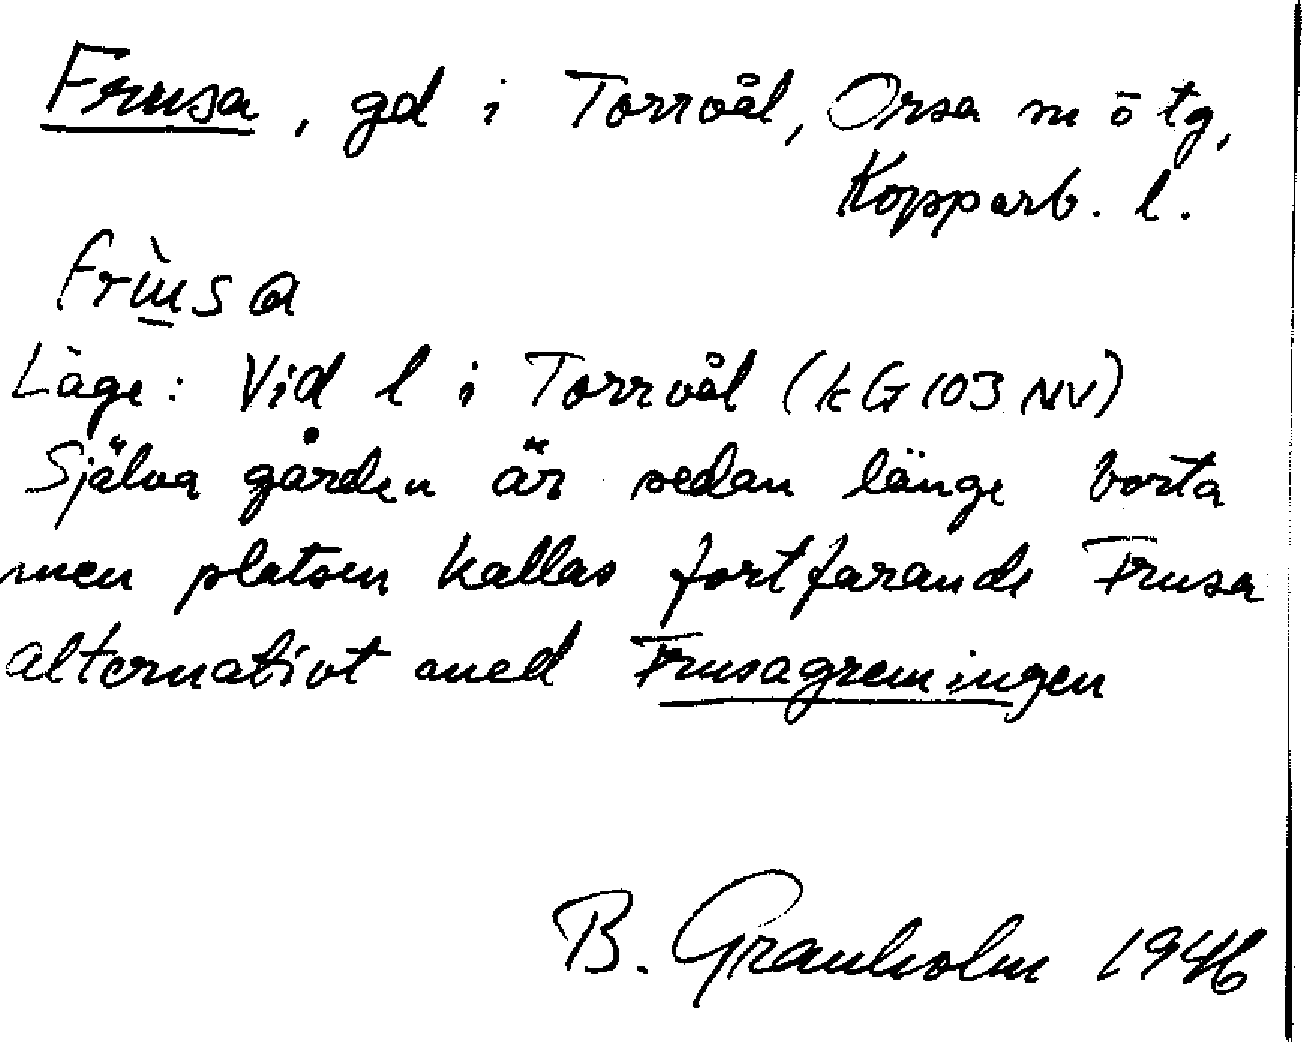 Frusa, gd i Torrvål, Orsa sn ö tg,
Kopparb. l.
frùsa
Läge: Vid l i Torrvål (kG 103 NV)
Själva gården är sedan länge borta
men platsen kallas fortfarande Frusa
alternativt med Frusagreningen
B. Granholm 1946